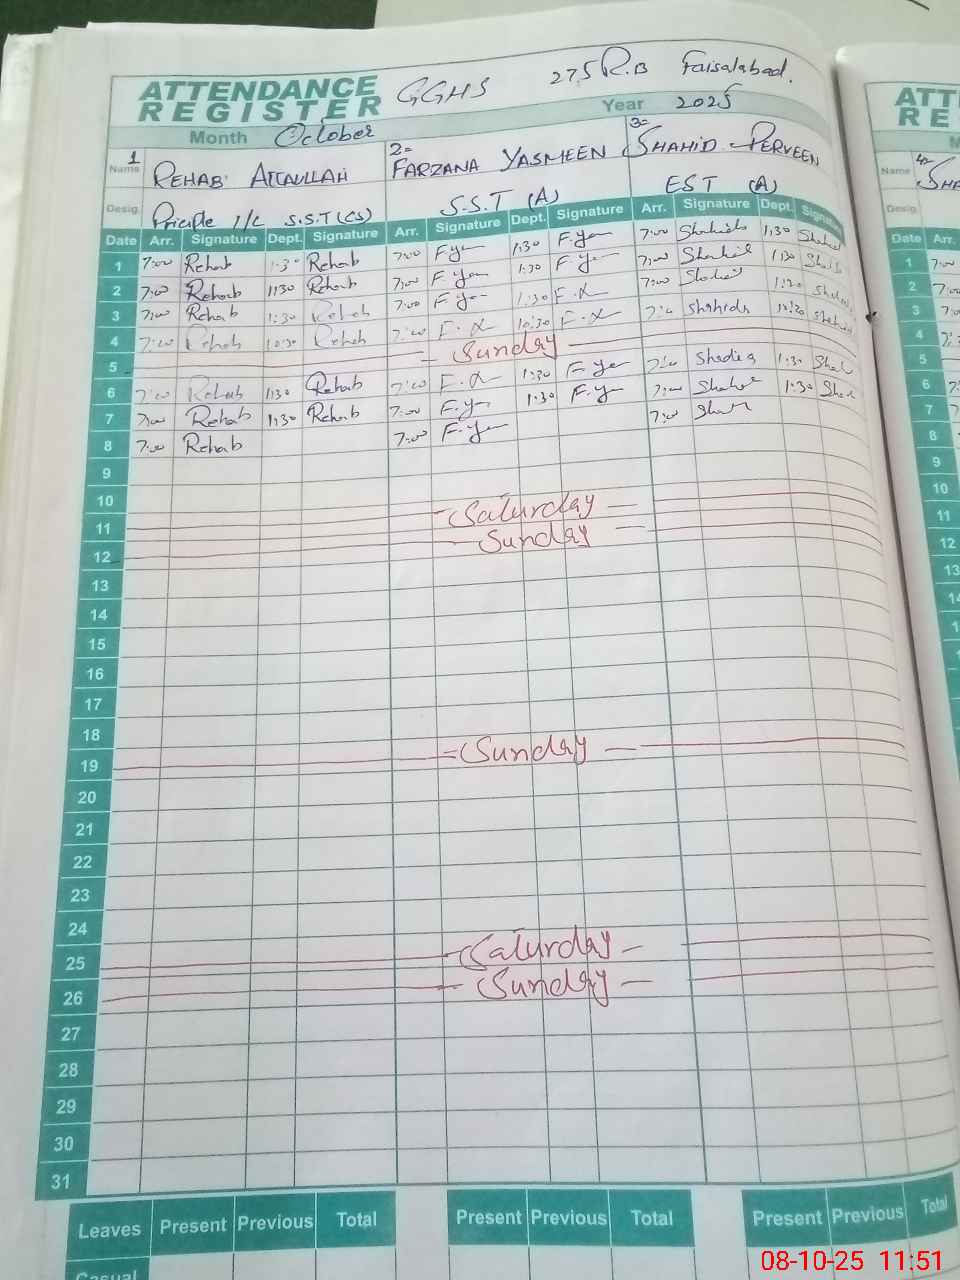 ATTENDANCE REGISTER GGHS 275 R.B Faisalabad.
Month October Year 2025
1 Name REHAB ATTAULLAH 2= FARZANA YASMEEN 3= SHAHID PERVEEN
Desig. Priciple I/C S.S.T (CS) S.S.T (A) EST (A)
Date Arr. Signature Dept. Signature Arr. Signature Dept. Signature Arr. Signature Dept. Signature
1 7:00 Rehab 1:30 Rehab 7:00 F.Ye 1:30 F.Ye 7:00 1:30
2 7:00 Rehab 1:30 Rehab 7:00 F.Ye 1:30 F.Ye 7:00 1:30
3 7:00 Rehab 1:30 Rehab 7:00 F.Ye 1:30 7:00 1:30
4 7:00 Rehab 10:30 Rehab 7:00 10:30 10:30
5 Sunday
6 7:00 Rehab 1:30 Rehab 7:00 1:30 F.Ye 7:00 1:30
7 7:00 Rehab 1:30 Rehab 7:00 F.Ye 1:30 F.Ye 7:00 1:30
8 7:00 Rehab 7:00 F.Ye 7:00
9
10
11 Saturday
12 Sunday
13
14
15
16
17
18
19 Sunday
20
21
22
23
24
25 Saturday
26 Sunday
27
28
29
30
31
Leaves Present Previous Total Present Previous Total Present Previous Total
Casual
ATT
RE
Name 4=
Desig.
Date Arr.
1 7:00
2
3
4
5
6
7
8
9
10
11
12
13
08-10-25 11:51